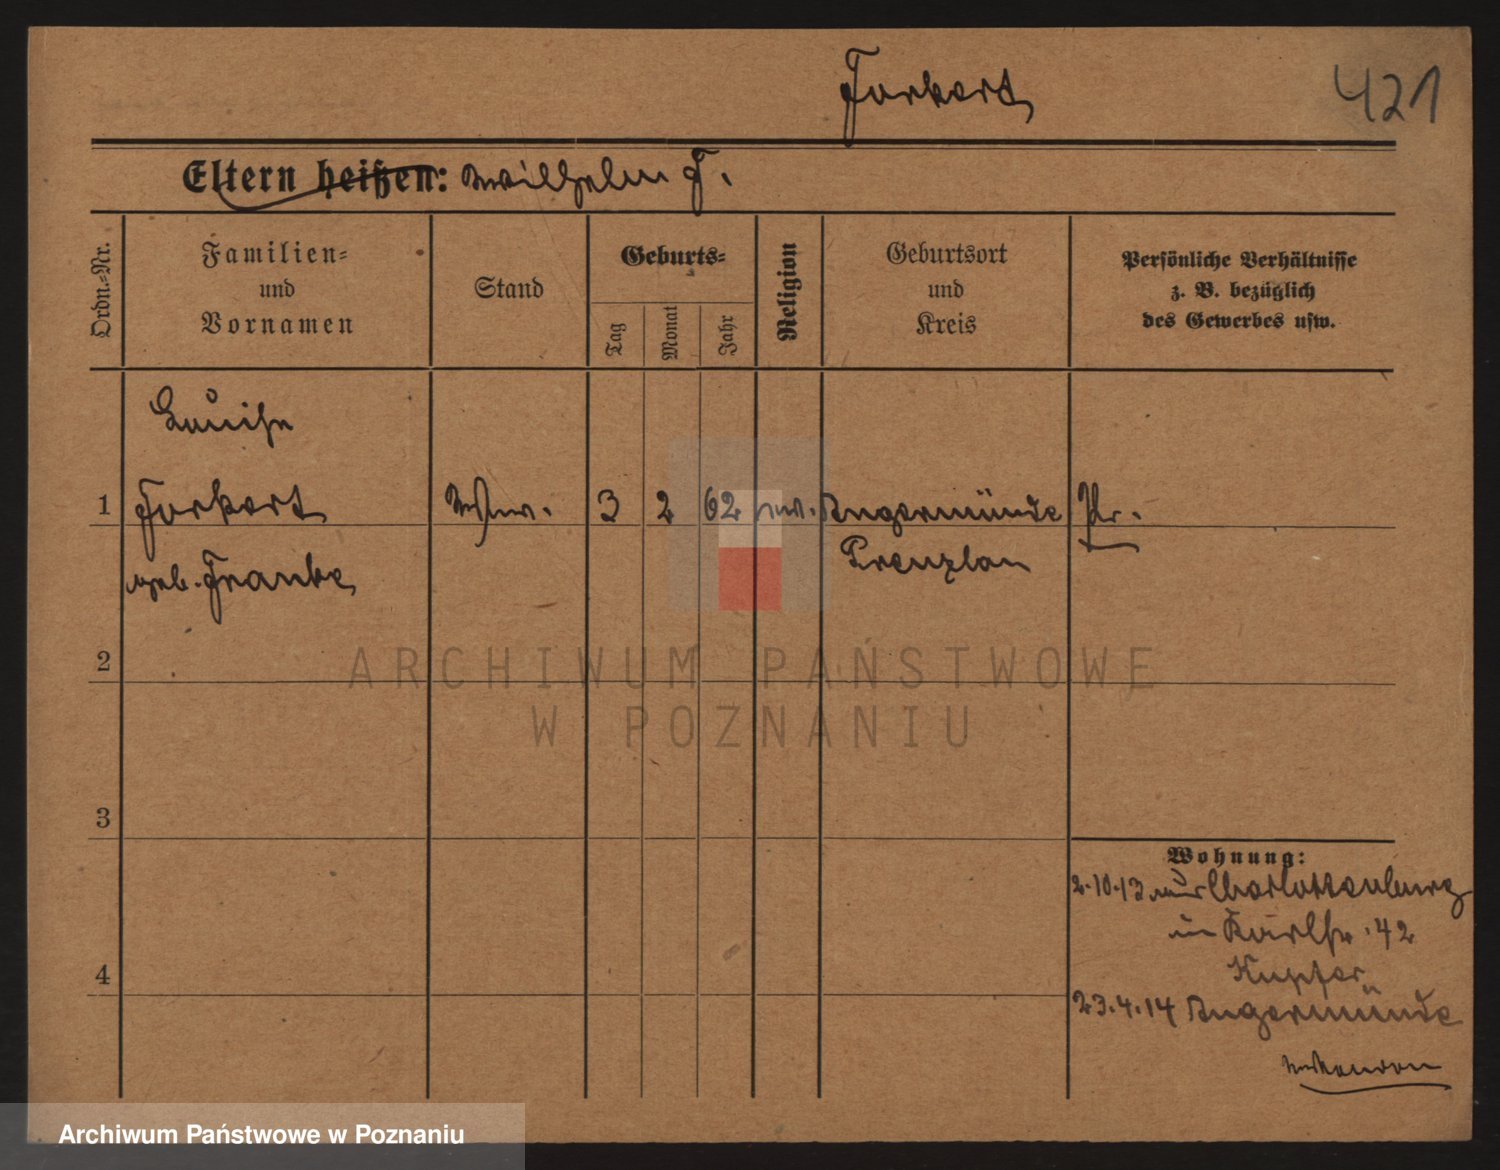 Forkert
421
Eltern heißen: Wilhelm F.
Ordn.-Nr.
Familien-
und
Vornamen
Stand
Geburts-
Tag
Monat
Jahr
Religion
Geburtsort
und
Kreis
Persönliche Verhältnisse
z. B. bezüglich
des Gewerbes usw.
Luise
1 Forkert Ww. 3 2 62 ev. Angermünde Pr.
geb. Franke Prenzlau
2
3
4
Wohnung:
2.10.13 Charlottenburg
in 42
Kupfer
23.4.14 Angermünde
ARCHIWUM PAŃSTWOWE
W POZNANIU
Archiwum Państwowe w Poznaniu